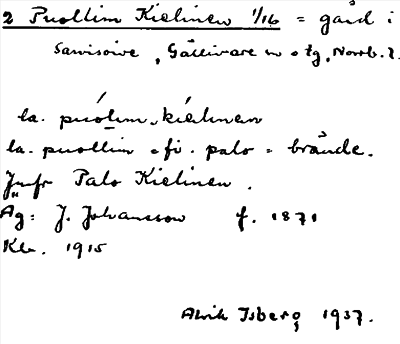 2 Puollim Kielinen 1/16 = gård i
Sarvisoive, Gällivare sn o tg, Norrb. l.
la. puólim-kíelinen
la. puollim = fi. palo = brände.
Jmfr Palo Kielinen.
Äg: J. Johansson f. 1871
Kbr. 1915
Alvik Isberg 1937.